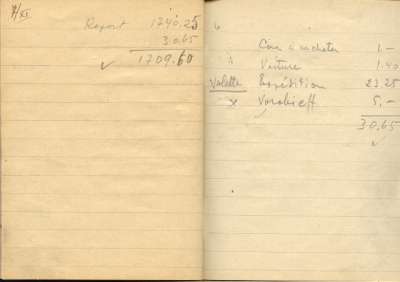 7/XI
Report 1740.25
30.65
1709.60
6
à acheter 1.-
Voiture 1.40
Valette Expédition 23.25
Vorobieff 5,-
30,65